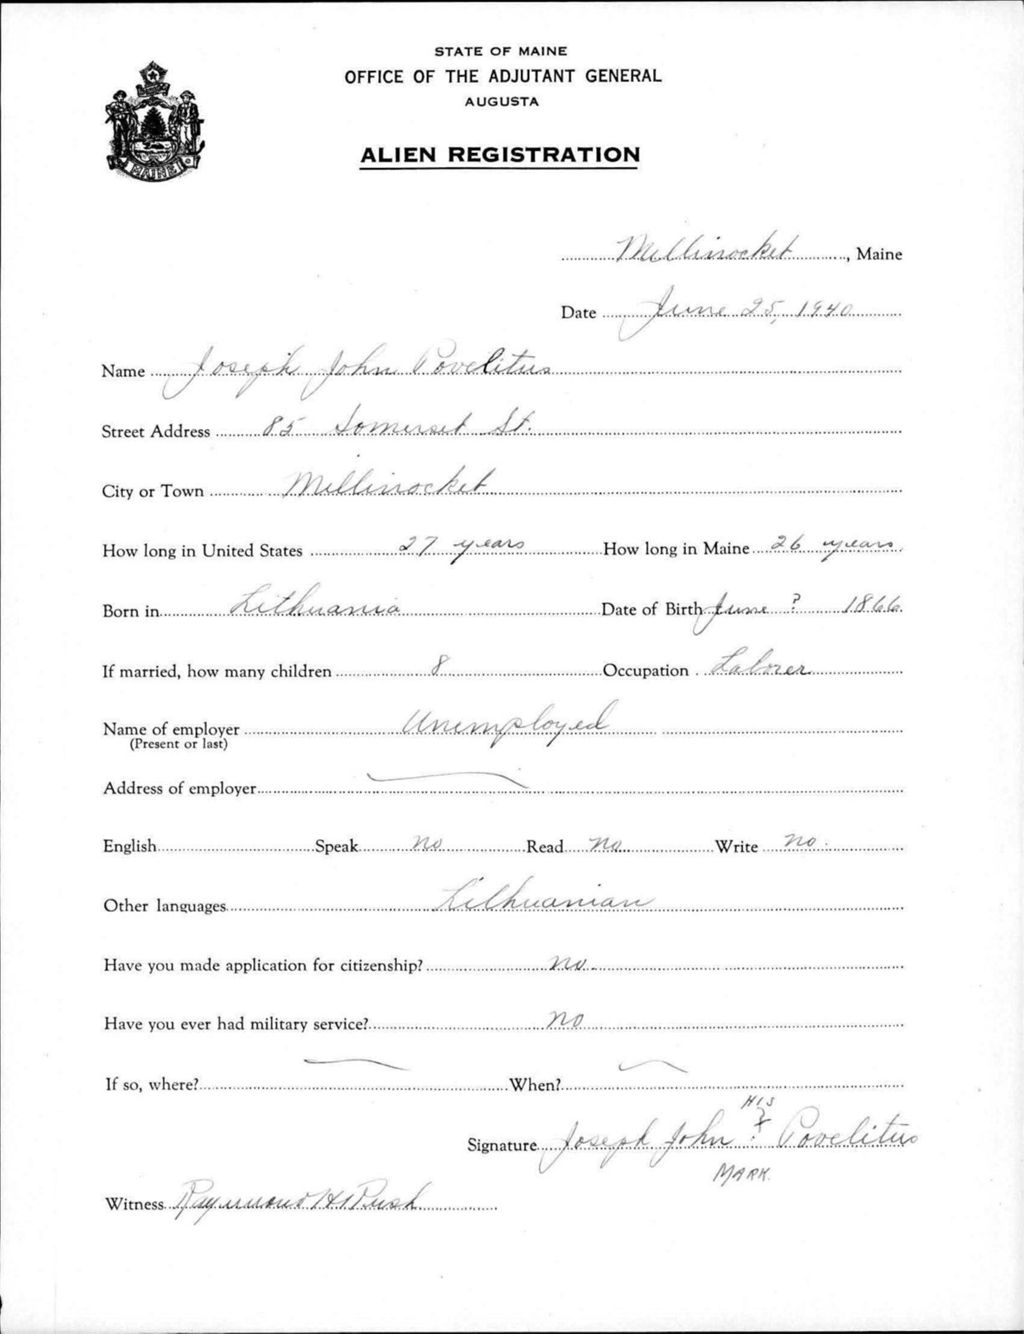 STATE OF MAINE
OFFICE OF THE ADJUTANT GENERAL
AUGUSTA
ALIEN REGISTRATION
MAINE
Millinocket, Maine
Date June 25, 1940
Name Joseph John Povelitus
Street Address 85 Somerset St.
City or Town Millinocket
How long in United States 27 years How long in Maine 26 years
Born in Lithuania Date of Birth June ? 1866
If married, how many children 8 Occupation Laborer
Name of employer Unemployed
(Present or last)
Address of employer
English Speak No Read No Write No.
Other languages Lithuanian
Have you made application for citizenship? No
Have you ever had military service? No
If so, where? When?
HIS
Signature Joseph John X Povelitus
MARK
Witness Raymond H Rush